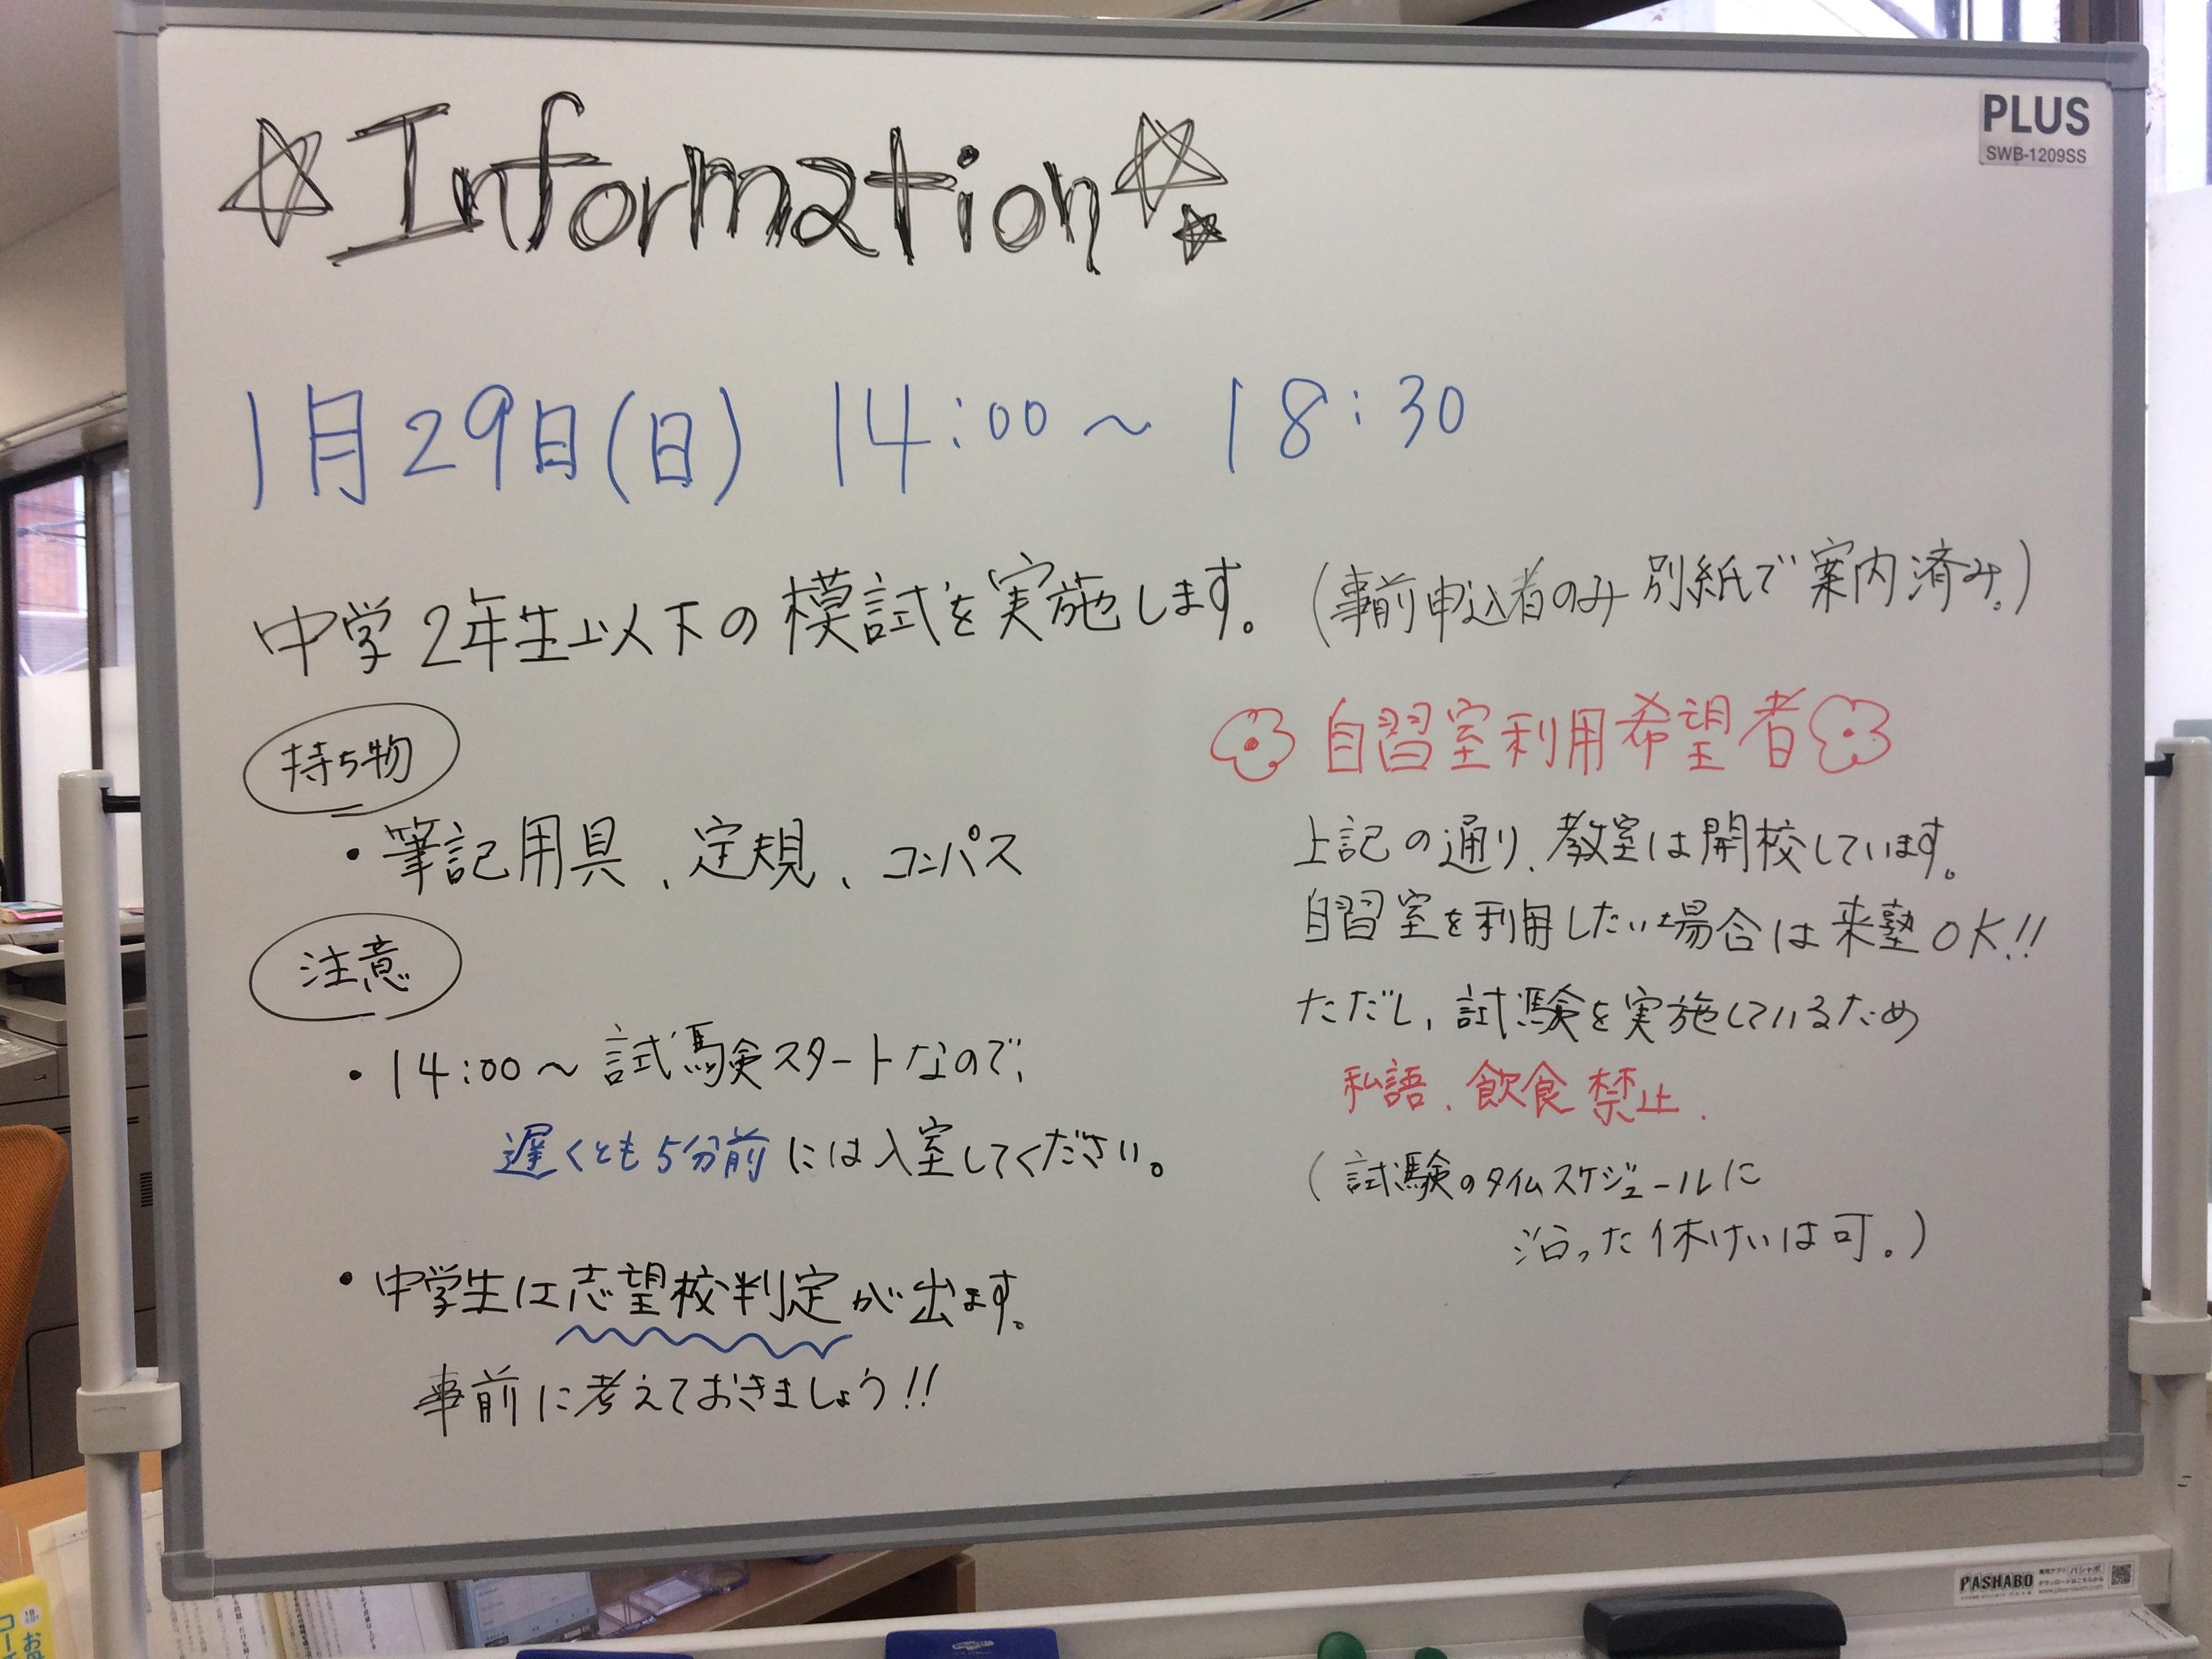 ☆Information☆☆
PLUS
SWB-1209SS
1月29日(日) 14:00～18:30
中学2年生以下の模試を実施します。(事前申込者のみ 別紙で案内済み。)
持ち物
・筆記用具、定規、コンパス
注意
・14:00～試験スタートなので、
遅くとも5分前には入室してください。
・中学生は志望校判定が出ます。
事前に考えておきましょう!!
自習室利用希望者
上記の通り、教室は開校しています。
自習室を利用したい場合は来塾OK!!
ただし、試験を実施しているため
私語、飲食禁止.
(試験のタイムスケジュールに
沿った休けいは可。)
PASHABO